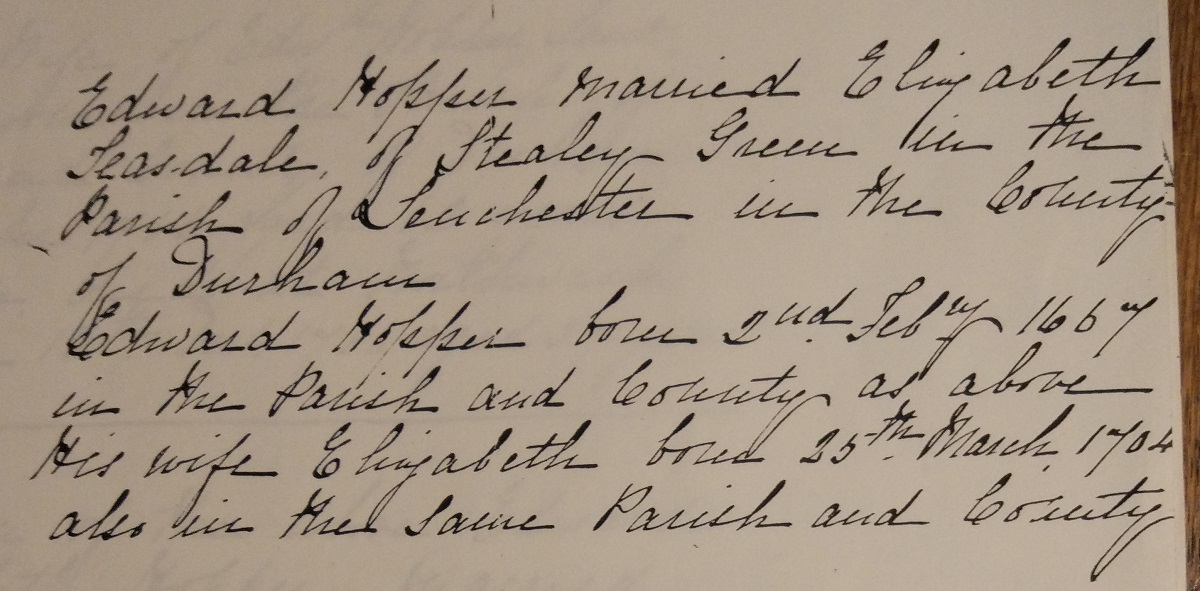 Edward Hopper married Elizabeth
Teasdale, of Stealey Green in the
Parish of Lenchester in the County
of Durham
Edward Hopper born 2nd. Feby 1667
in the Parish and County as above
His wife Elizabeth born 25th. March, 1704
also in the same Parish and County